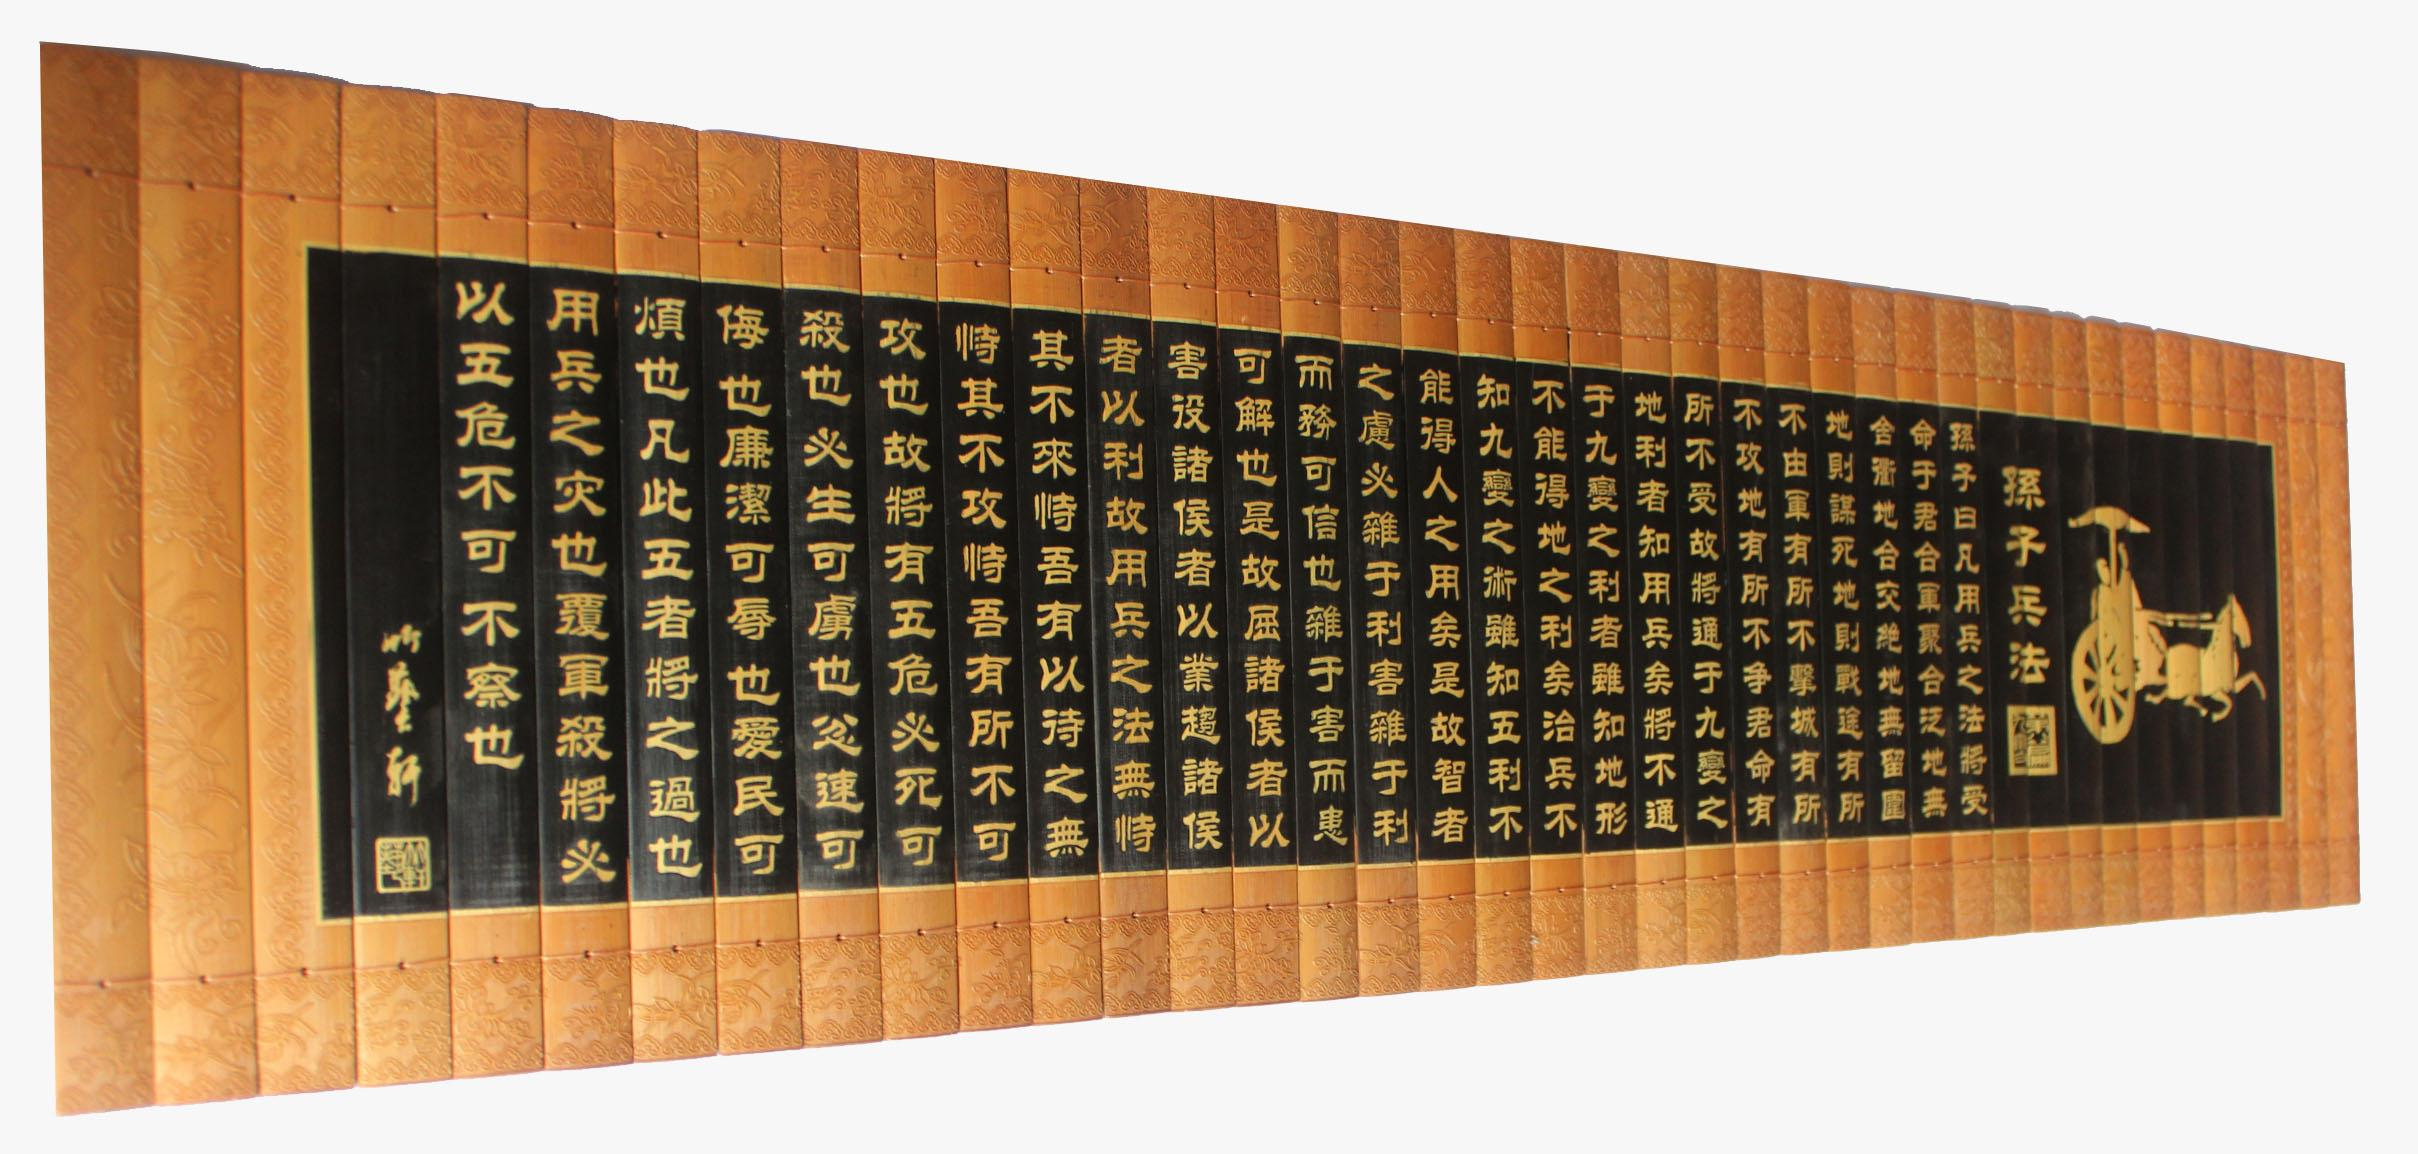 孫子兵法
孫子曰凡用兵之法將受
命于君合軍聚合泛地無
舍衢地合交絶地無留圍
地則謀死地則戰途有所
不由軍有所不擊城有所
不攻地有所不争君命有
所不受故將通于九變之
地利者知用兵矣將不通
于九變之利者雖知地形
不能得地之利矣治兵不
知九變之術雖知五利不
能得人之用矣是故智者
之慮必雜于利害雜于利
而務可信也雜于害而患
可解也是故屈諸侯者以
害役諸侯者以業趨諸侯
者以利故用兵之法無恃
其不來恃吾有以待之無
恃其不攻恃吾有所不可
攻也故將有五危必死可
殺也必生可虜也忿速可
侮也廉潔可辱也愛民可
煩也凡此五者將之過也
用兵之灾也覆軍殺將必
以五危不可不察也
竹藝軒